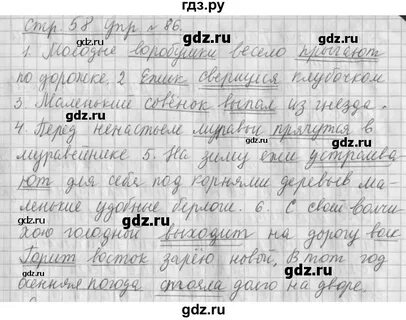 гдз.ру
Стр. 58 упр № 86.
1. Молодые воробушки весело прыгают
по дорожке. 2 Ёжик свернулся клубочком
3. Маленький совёнок выпал из гнезда.
4. Перед ненастьем муравьи прячутся в
муравейнике 5. На зиму ежи устраива-
ют для себя под корнями деревьев ма-
ленькие удобные берлоги. 6. С своей волчи-
хою голодной выходит на дорогу волк
Горит восток зарёю новой, В тот год
осенняя погода стояла долго на дворе.